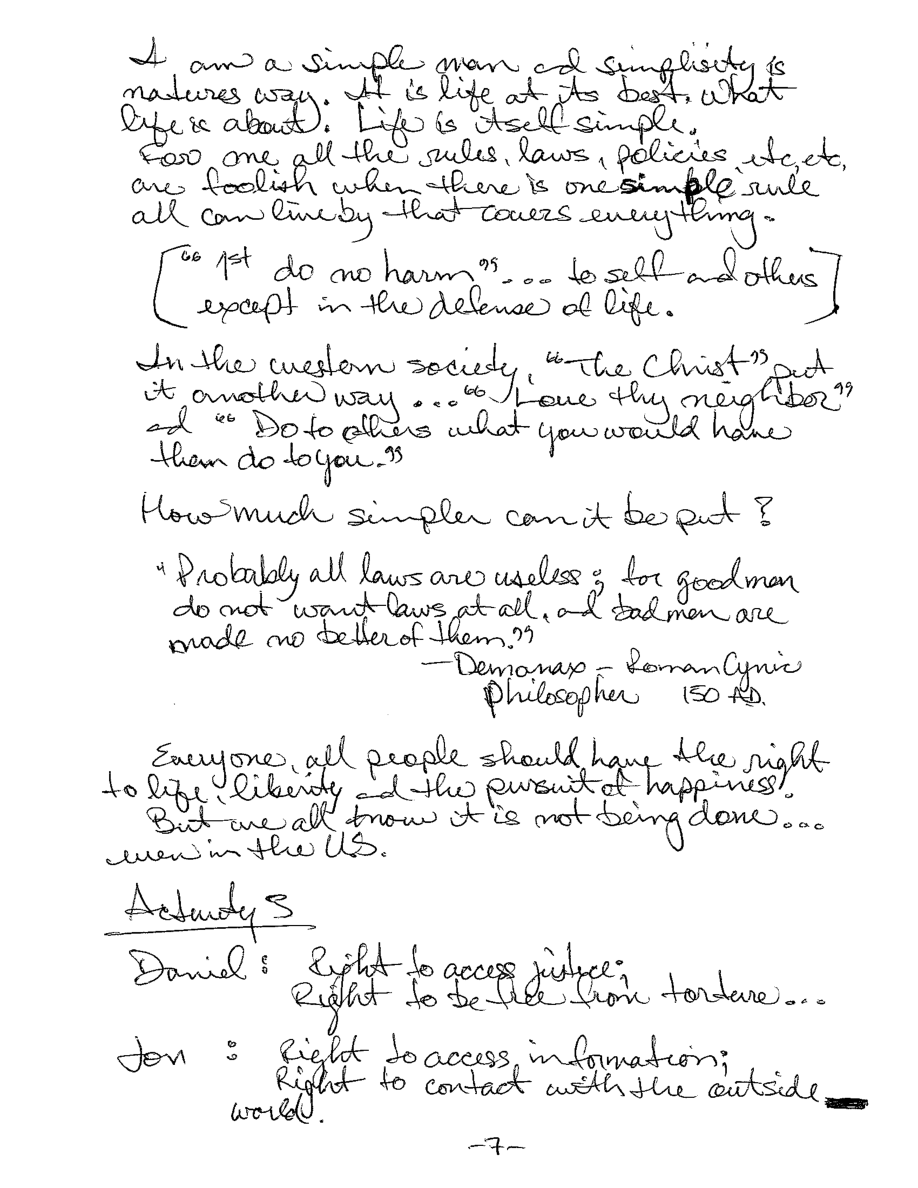 I am a simple man ad simplisity is
natures way. It is life at its best, what
life is about. Life is itself simple.
For me all the rules, laws, policies etc, etc,
are foolish when there is one simple rule
all can live by that covers everything.
["1st do no harm" ... to self and others
except in the defense of life.]
In the western society, "The Christ" put
it another way ... "Love thy neighbor"
ad "Do to others what you would have
them do to you."
How much simpler can it be put?
"Probably all laws are useless; for good men
do not want laws at all, and bad men are
made no better of them."
— Demonax – Roman Cynic
Philosopher 150 A.D.
Everyone, all people should have the right
to life, liberity ad the pursuit of happiness.
But we all know it is not being done...
even in the US.
Activity 3
Daniel: Right to access justice;
Right to be free from torture...
Jon : Right to access information;
Right to contact with the outside
world.
-7-